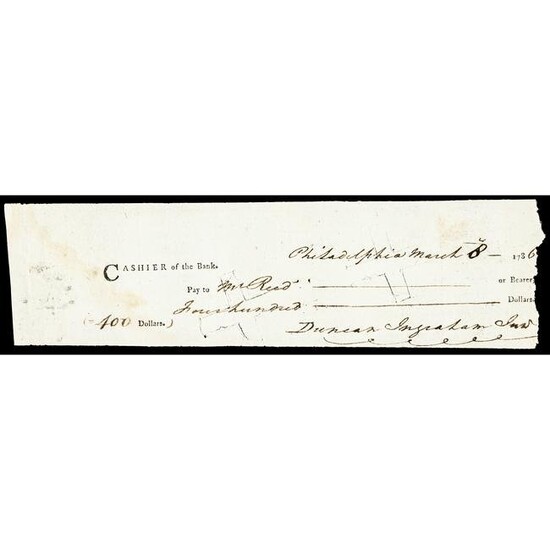 Philadelphia March 8 — 1786
CASHIER of the Bank.
Pay to Mr Reed or Bearer
Four hundred Dollars
(400 Dollars.)
Duncan Ingraham Junr